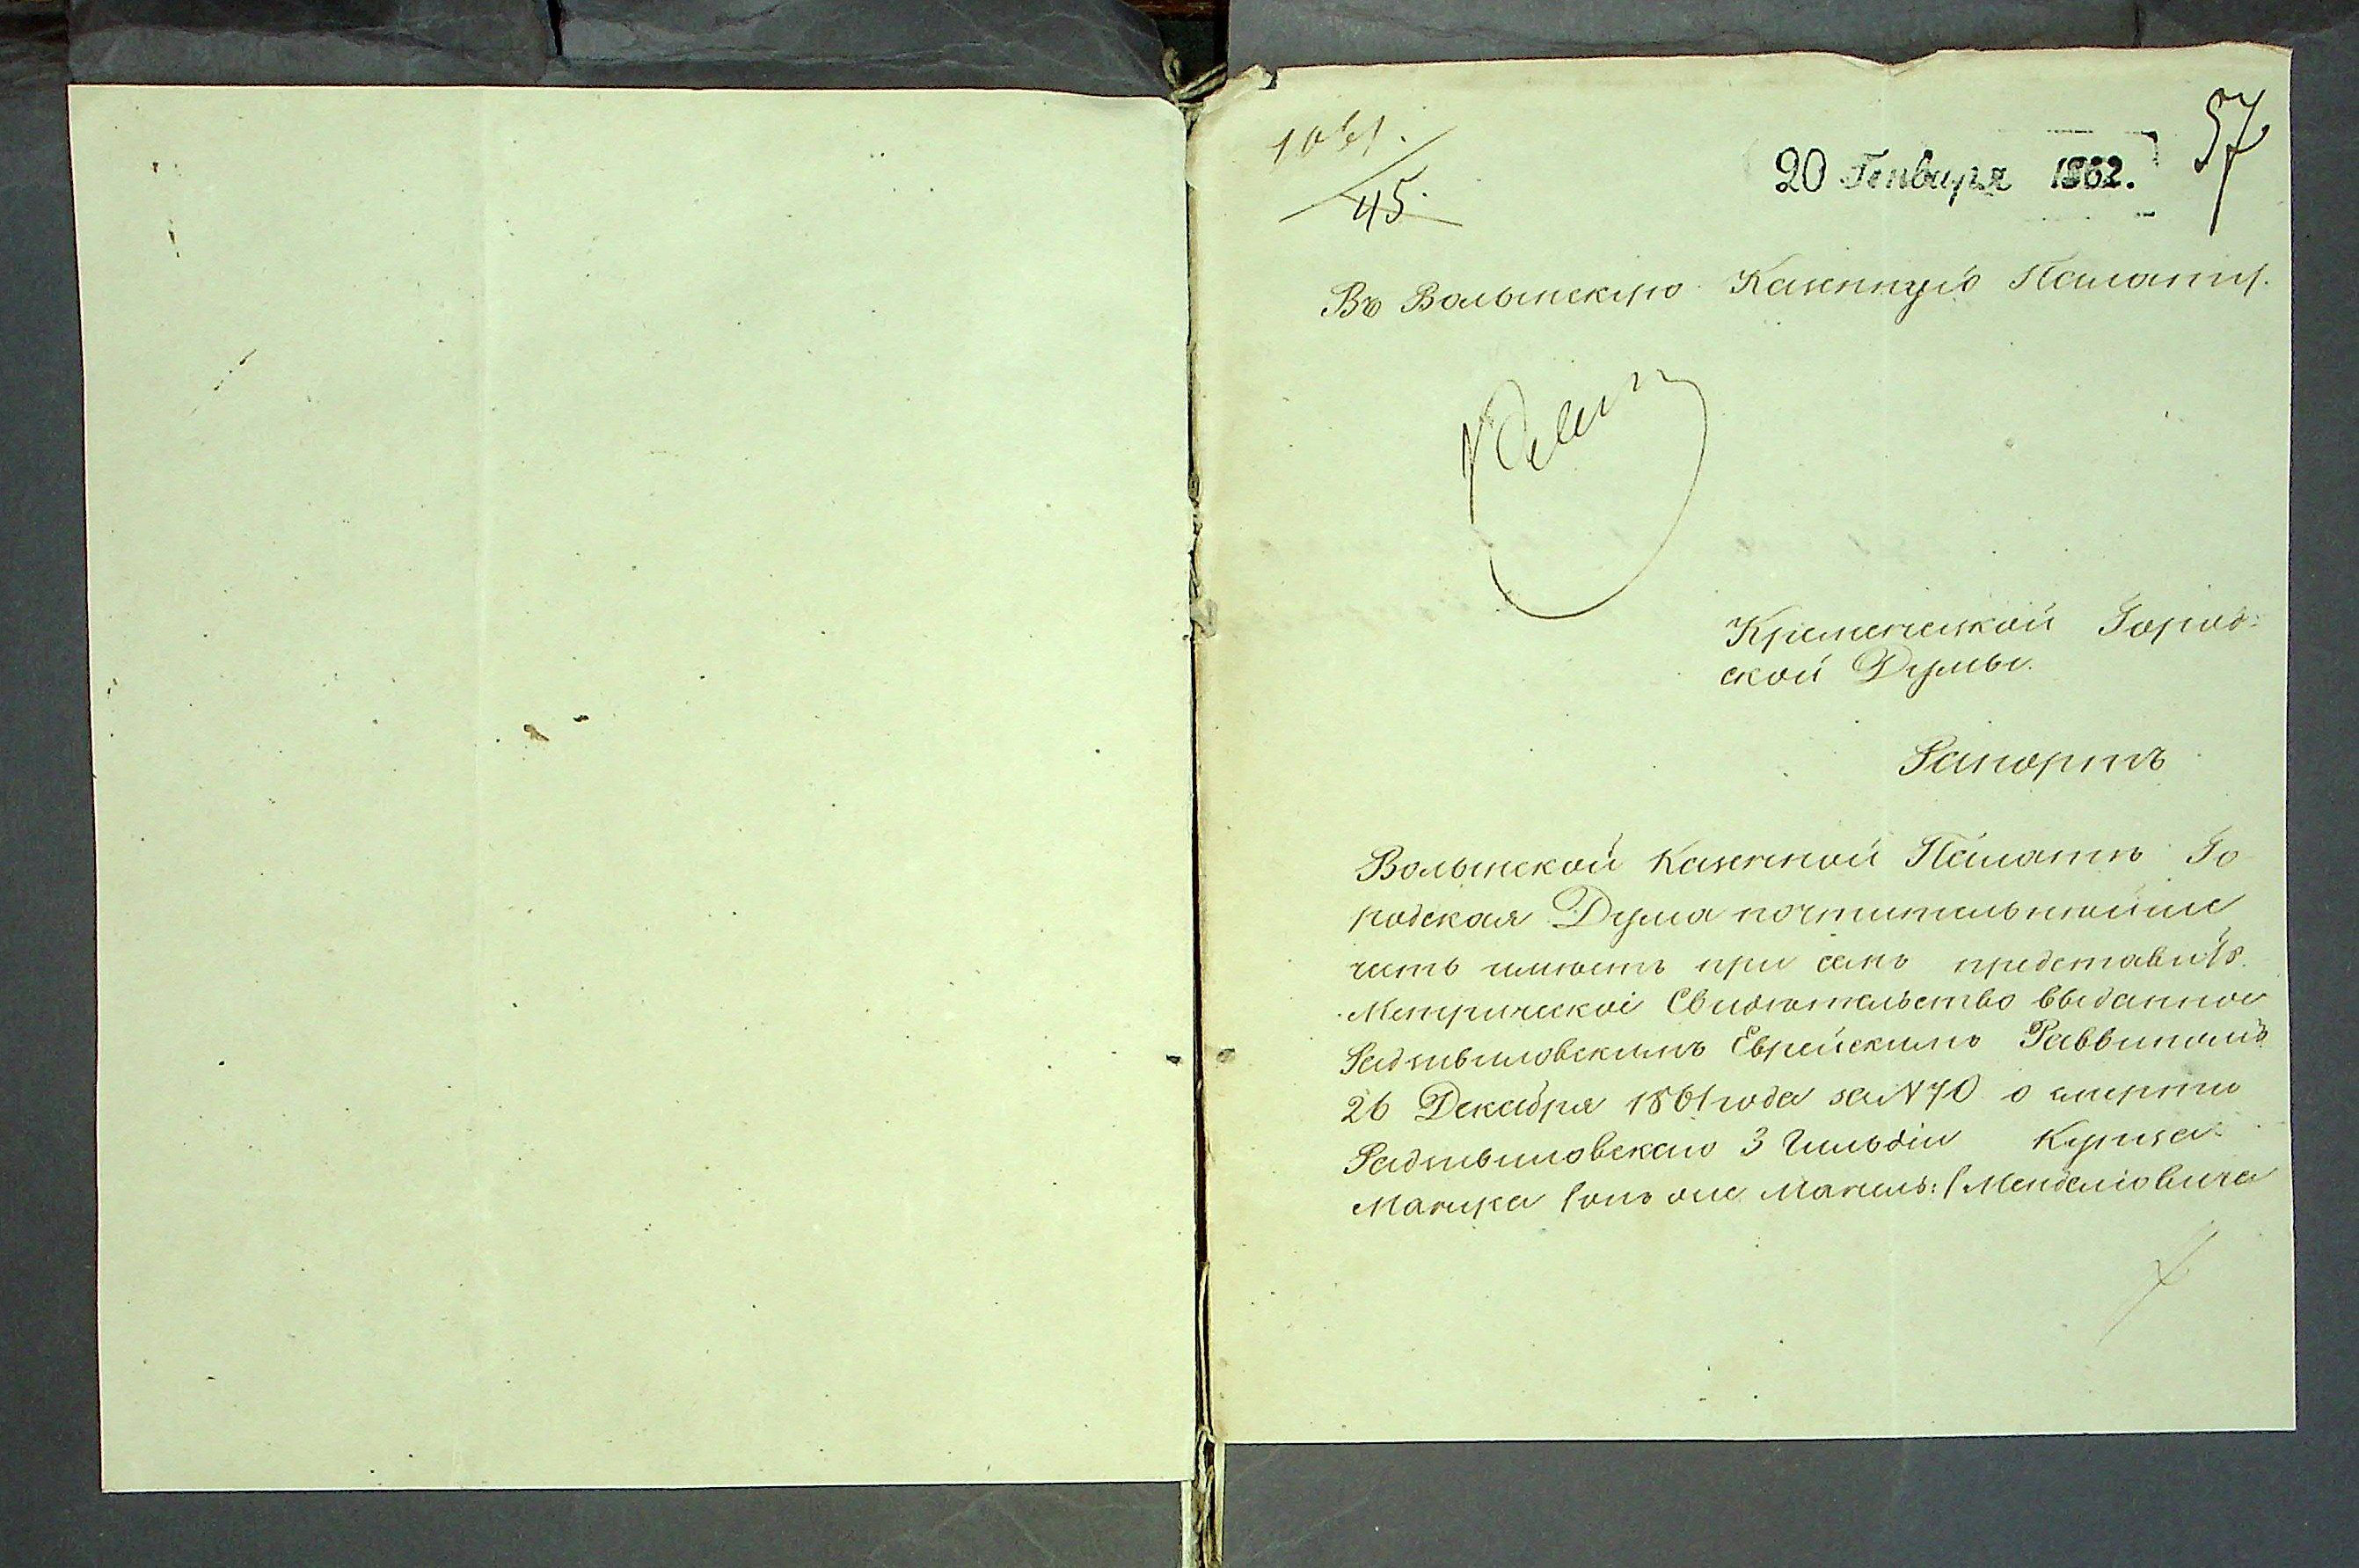 1061.
45.
20 Генваря 1862.
57
Въ Волынскую Казенную Палату.
Кременецкой Город:
ской Думы.
Рапортъ
Волынской Казенной Палатѣ Го
родская Дума почтительнѣйше
честь имѣетъ при семъ представить
Метрическое Свидѣтельство выданное
Радзивиловскимъ Еврейскимъ Раввиномъ
26 Декабря 1861 года за N 70 о смерти
Радзивиловскаго 3 Гильдіи Купца
онъ же Мендельовича